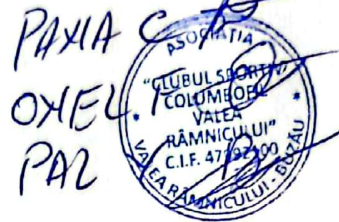 PAXIA C
OXEL T
PAL
ASOCIAȚIA
"CLUBUL SPORTIV
COLUMBOFIL
VALEA
RÂMNICULUI"
C.I.F.
VALEA RÂMNICULUI - BUZĂU